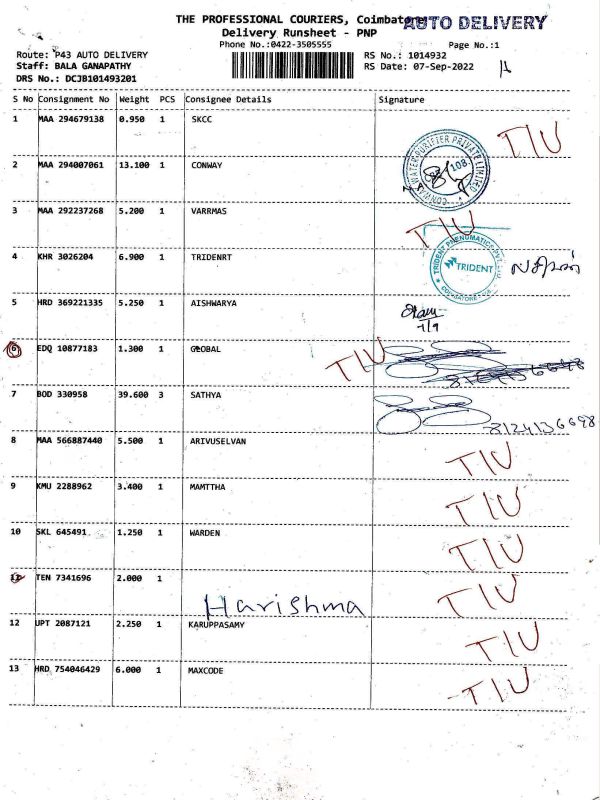 THE PROFESSIONAL COURIERS, Coimbatore
AUTO DELIVERY
Delivery Runsheet - PNP
Phone No.:0422-3505555
Page No.:1
Route: P43 AUTO DELIVERY
RS No.: 1014932
Staff: BALA GANAPATHY
RS Date: 07-Sep-2022
DRS No.: DCJB101493201
S No Consignment No Weight PCS Consignee Details Signature
1 MAA 294679138 0.950 1 SKCC TIU
2 MAA 294007061 13.100 1 CONWAY
WATER PURIFIER PRIVATE LIMITED
108
3 MAA 292237268 5.200 1 VARRMAS TIU
4 KHR 3026204 6.900 1 TRIDENRT
TRIDENT
5 HRD 369221335 5.250 1 AISHWARYA
7/9
6 EDQ 10877183 1.300 1 GLOBAL TIU
7 BOD 330958 39.600 3 SATHYA
8124136698
8 MAA 566887440 5.500 1 ARIVUSELVAN TIU
9 KMU 2288962 3.400 1 MAMTTHA TIU
10 SKL 645491 1.250 1 WARDEN TIU
11 TEN 7341696 2.000 1 Harishma TIU
12 UPT 2087121 2.250 1 KARUPPASAMY TIU
13 HRD 754046429 6.000 1 MAXCODE TIU